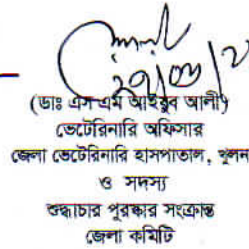 (ডাঃ এস এম আইয়ুব আলী)
ভেটেরিনারি অফিসার
জেলা ভেটেরিনারি হাসপাতাল, খুলনা
ও সদস্য
শুদ্ধাচার পুরস্কার সংক্রান্ত
জেলা কমিটি